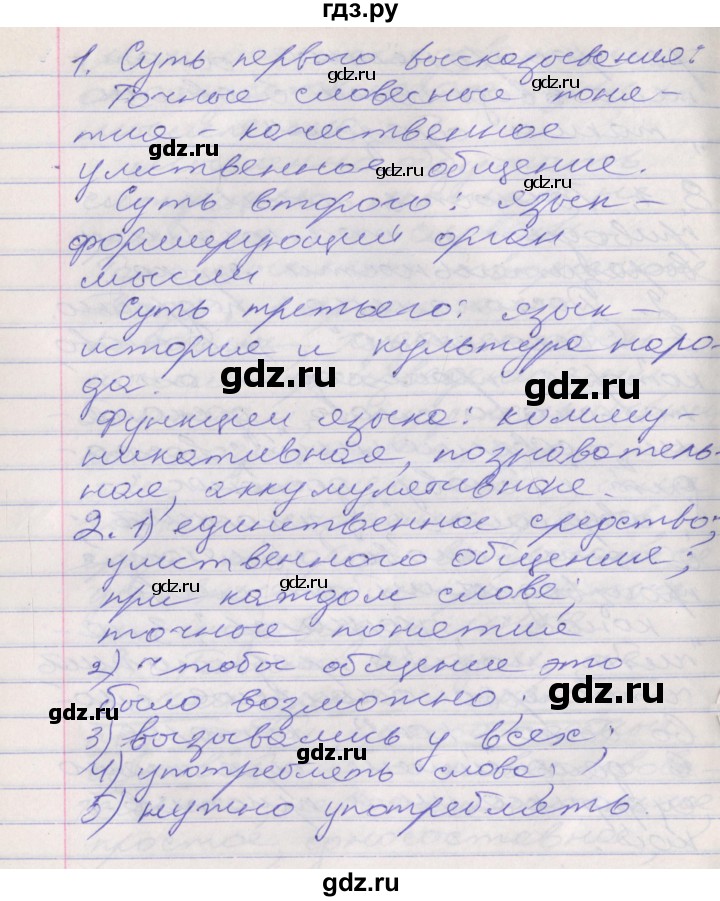 гдз.ру
1. Суть первого высказывания:
gdz.ru
Точные словесные поня-
gdz.ru
тия - качественное
gdz.ru
умственное общение.
gdz.ru
Суть второго: язык -
gdz.ru
формирующий орган
мысли
Суть третьего: язык -
история и культура наро-
gdz.ru
gdz.ru
да.
Функции языка: комму-
никативная, познаватель-
ная, аккумулятивная.
2. 1) единственное средство;
умственного общения;
gdz.ru
gdz.ru
при каждом слове;
точные понятия
2) чтобы общение это
было возможно;
gdz.ru
gdz.ru
3) вызывались у всех;
gdz.ru
4) употреблять слова;
5) нужно употреблять.
gdz.ru